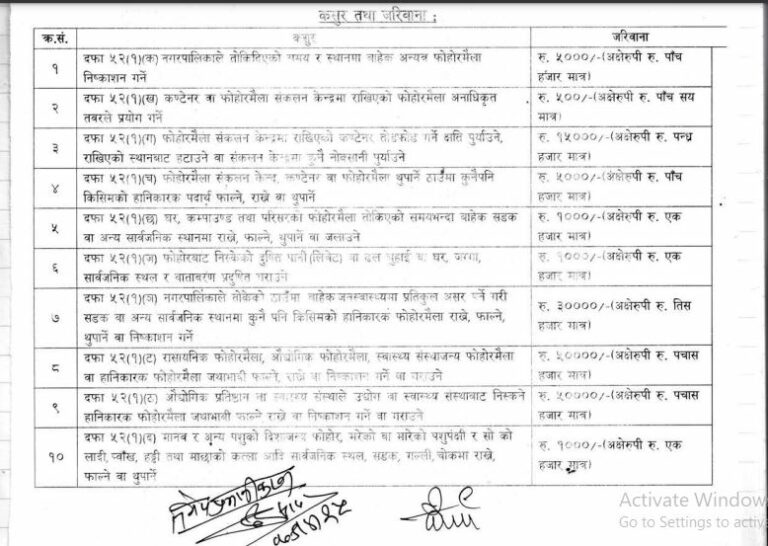 कसुर तथा जरिवाना :
क्र.सं. कसुर जरिवाना
१ दफा ५२(१)(क) नगरपालिकाले तोकिदिएको समय र स्थानमा बाहेक अन्यत्र फोहोरमैला रु. ५०००/-(अक्षेरुपी रु. पाँच
निष्काशन गर्ने हजार मात्र)
२ दफा ५२(१)(ख) कण्टेनर वा फोहोरमैला संकलन केन्द्रमा राखिएको फोहोरमैला अनाधिकृत रु. ५००/-(अक्षेरुपी रु. पाँच सय
तबरले प्रयोग गर्ने मात्र)
३ दफा ५२(१)(ग) फोहोरमैला संकलन केन्द्रमा राखिएको कण्टेनर तोडफोड गर्ने क्षति पुर्याउने, रु. १५०००/-(अक्षेरुपी रु. पन्ध्र
राखिएको स्थानबाट हटाउने वा संकलन केन्द्रमा कुनै नोक्सानी पुर्याउने हजार मात्र)
४ दफा ५२(१)(च) फोहोरमैला संकलन केन्द्र, कण्टेनर वा फोहोरमैला थुपार्ने ठाउँमा कुनैपनि रु. ५०००/-(अक्षेरुपी रु. पाँच
किसिमको हानिकारक पदार्थ फाल्ने, राख्ने वा थुपार्ने हजार मात्र)
५ दफा ५२(१)(छ) घर, कम्पाउण्ड तथा परिसरका फोहोरमैला तोकिएको समयभन्दा बाहेक सडक रु. १०००/-(अक्षेरुपी रु. एक
वा अन्य सार्वजनिक स्थानमा राख्ने, फाल्ने, थुपार्ने वा जलाउने हजार मात्र)
६ दफा ५२(१)(ज) फोहोरबाट निस्केको दुषित पानी (लिचेट) वा ढल चुहाई वा घर, जग्गा, रु. १०००/-(अक्षेरुपी रु. एक
सार्वजनिक स्थल र वातावरण प्रदुषित गराउने हजार मात्र)
७ दफा ५२(१)(ञ) नगरपालिकाले तोकेको ठाउँमा बाहेक जनस्वास्थ्यमा प्रतिकुल असर पर्ने गरी रु. ३००००/-(अक्षेरुपी रु. तिस
सडक वा अन्य सार्वजनिक स्थानमा कुनै पनि किसिमको हानिकारक फोहोरमैला राख्ने, फाल्ने, हजार मात्र)
थुपार्ने वा निष्काशन गर्ने
८ दफा ५२(१)(ट) रासायनिक फोहोरमैला, औद्योगिक फोहोरमैला, स्वास्थ्य संस्थाजन्य फोहोरमैला रु. ५००००/-(अक्षेरुपी रु. पचास
वा हानिकारक फोहोरमैला जथाभावी फाल्ने, राख्ने वा निष्काशन गर्ने वा गराउने हजार मात्र)
९ दफा ५२(१)(ठ) औद्योगिक प्रतिष्ठान वा स्वास्थ्य संस्थाले उद्योग वा स्वास्थ्य संस्थाबाट निस्कने रु. ५००००/-(अक्षेरुपी रु. पचास
हानिकारक फोहोरमैला जथाभावी फाल्ने राख्ने वा निष्काशन गर्ने वा गराउने हजार मात्र)
१० दफा ५२(१)(द) मानव र अन्य पशुको दिशाजन्य फोहोर, मरेको वा मारेको पशुपंक्षी र सो को रु. १०००/-(अक्षेरुपी रु. एक
लादी, प्वाँख, हड्डी तथा माछाको कत्ला आदि सार्वजनिक स्थल, सडक, गल्ली, चोकमा राख्ने, हजार मात्र)
फाल्ने वा थुपार्ने
Activate Window
Go to Settings to activ